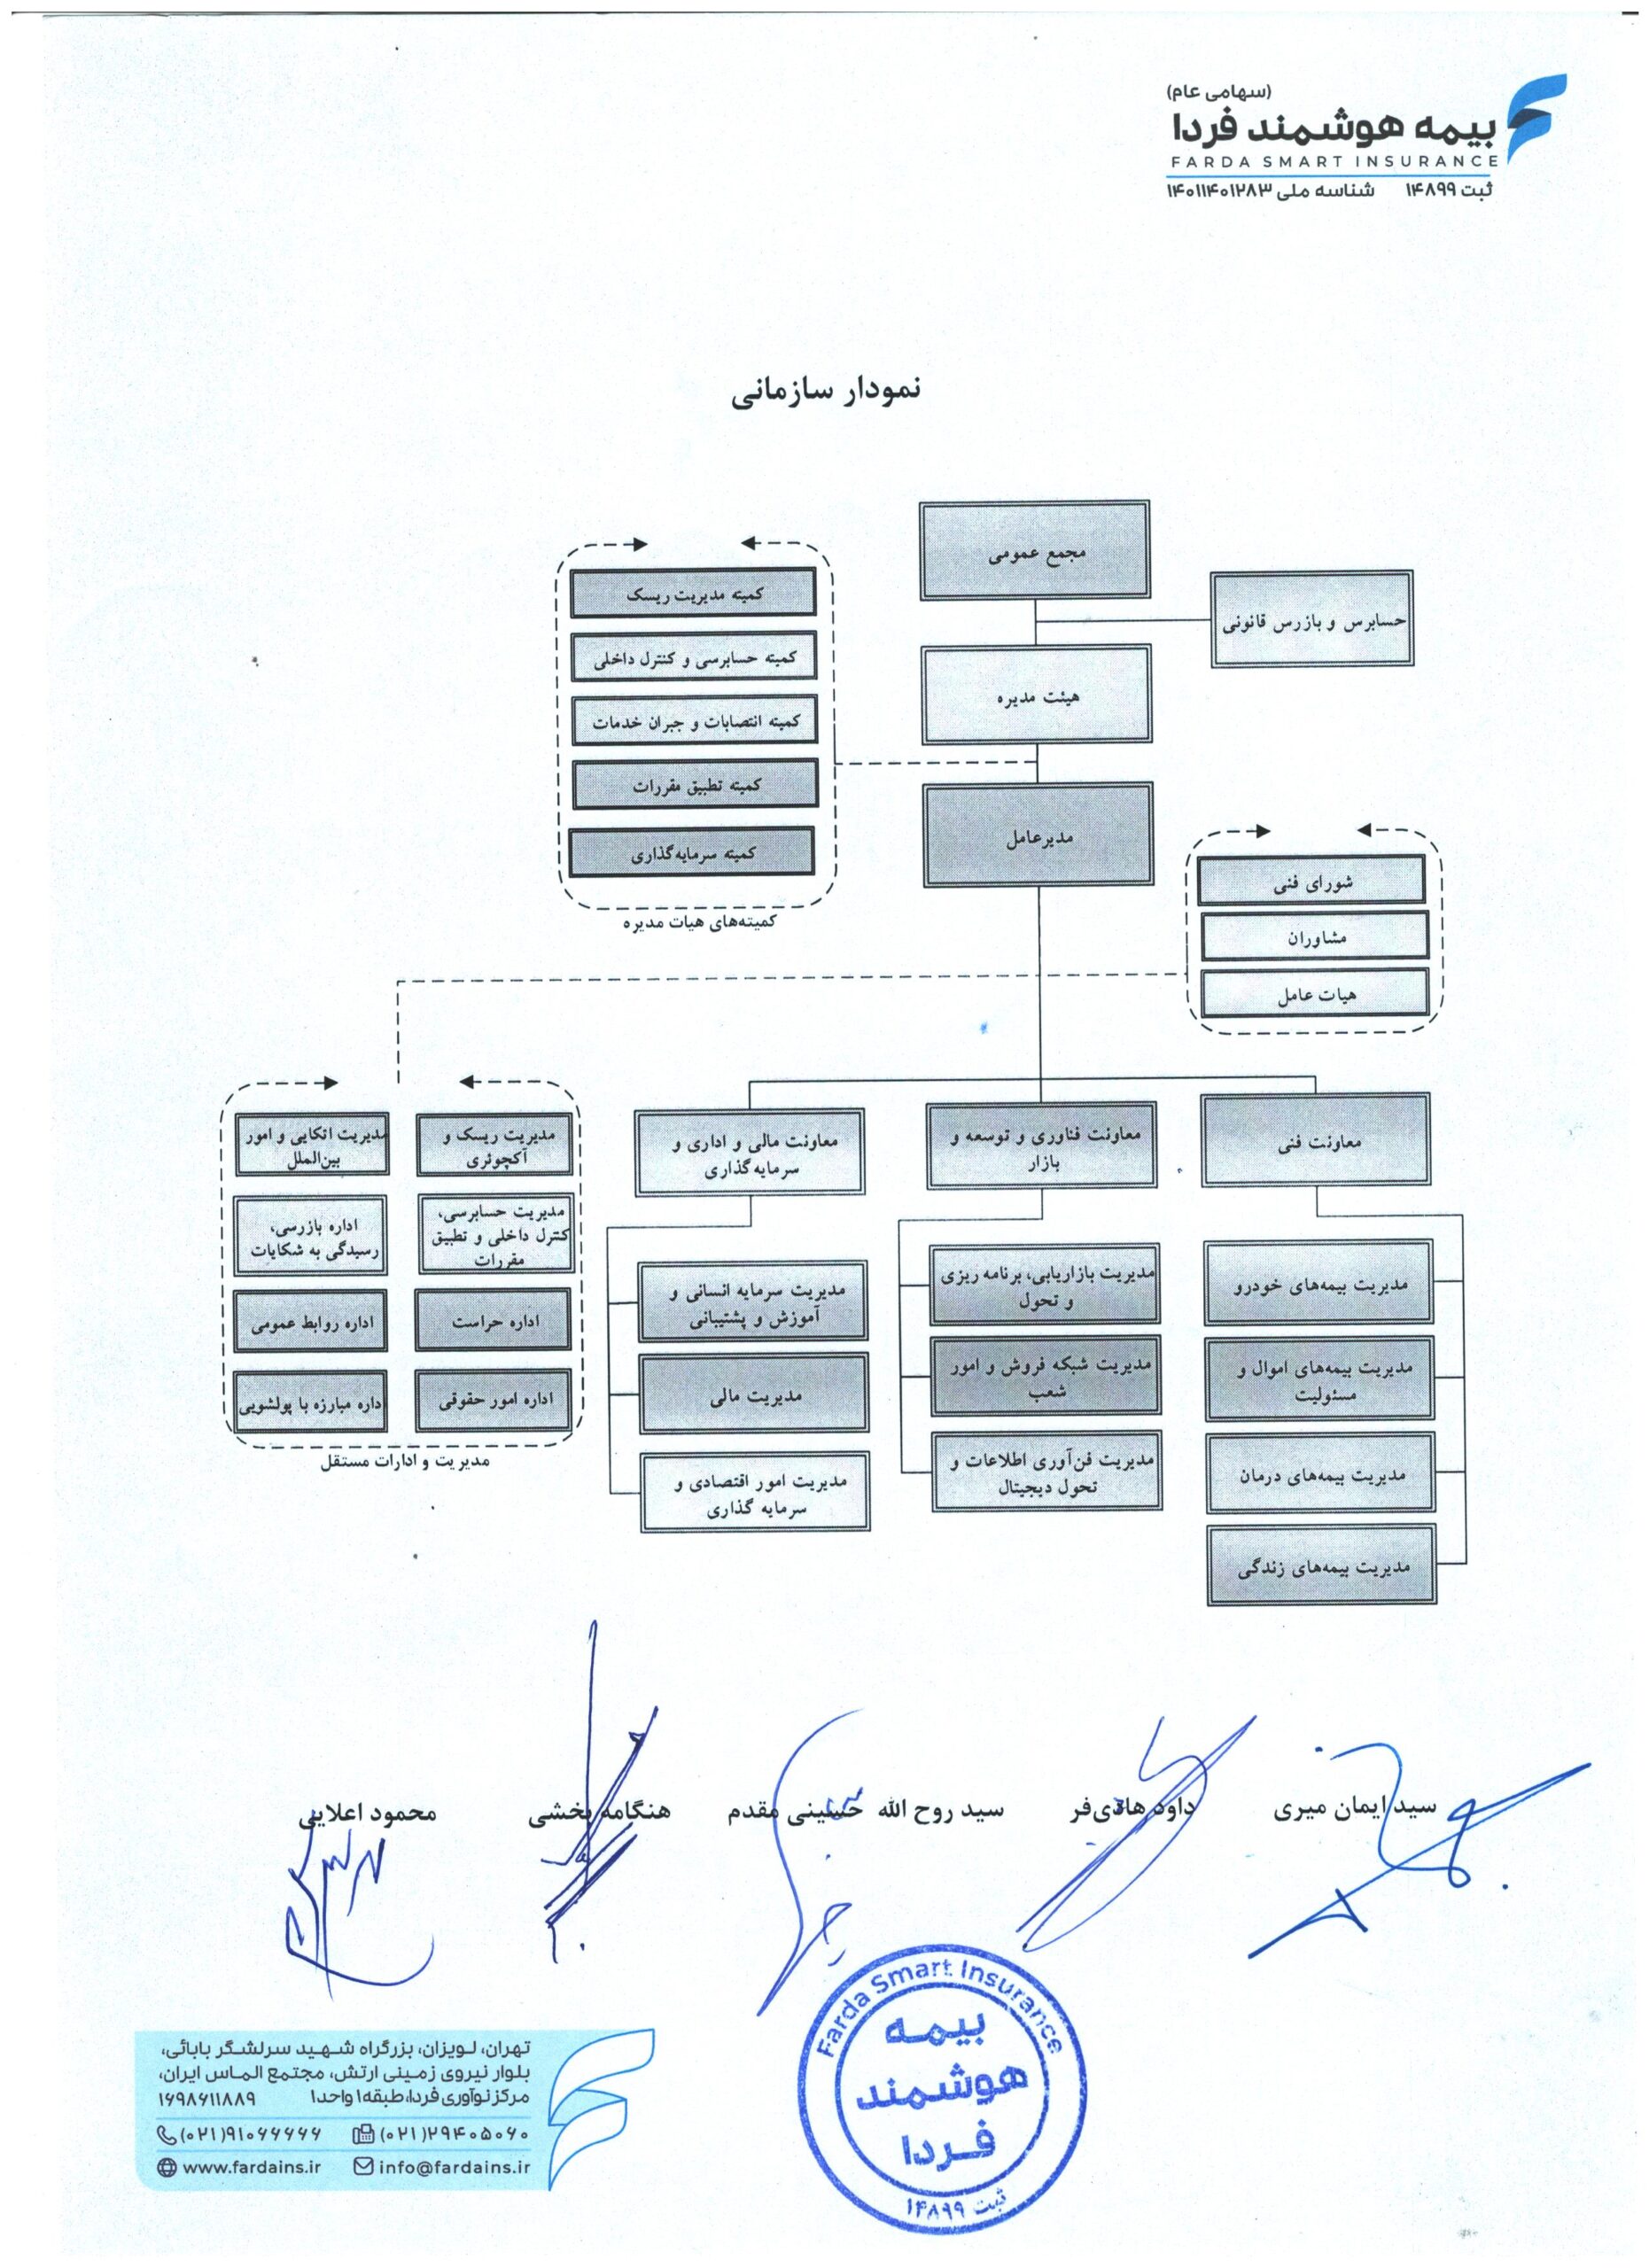 (سهامی عام)
بیمه هوشمند فردا
FARDA SMART INSURANCE
ثبت ۱۴۸۹۹ شناسه ملی ۱۴۰۱۱۴۰۱۲۸۳
نمودار سازمانی
مجمع عمومی
حسابرس و بازرس قانونی
هیئت مدیره
مدیرعامل
کمیته مدیریت ریسک
کمیته حسابرسی و کنترل داخلی
کمیته انتصابات و جبران خدمات
کمیته تطبیق مقررات
کمیته سرمایه‌گذاری
کمیته‌های هیات مدیره
شورای فنی
مشاوران
هیات عامل
معاونت فنی
مدیریت بیمه‌های خودرو
مدیریت بیمه‌های اموال و
مسئولیت
مدیریت بیمه‌های درمان
مدیریت بیمه‌های زندگی
معاونت فناوری و توسعه و
بازار
مدیریت بازاریابی، برنامه ریزی
و تحول
مدیریت شبکه فروش و امور
شعب
مدیریت فن‌آوری اطلاعات و
تحول دیجیتال
معاونت مالی و اداری و
سرمایه‌گذاری
مدیریت سرمایه انسانی و
آموزش و پشتیبانی
مدیریت مالی
مدیریت امور اقتصادی و
سرمایه گذاری
مدیریت ریسک و
آکچوئری
مدیریت حسابرسی،
کنترل داخلی و تطبیق
مقررات
اداره حراست
اداره امور حقوقی
مدیریت اتکایی و امور
بین‌الملل
اداره بازرسی،
رسیدگی به شکایات
اداره روابط عمومی
داره مبارزه با پولشویی
مدیریت و ادارات مستقل
سید ایمان میری
داود هادی‌فر
سید روح الله حسینی مقدم
هنگامه بخشی
محمود اعلایی
Farda Smart Insurance
بیمه
هوشمند
فردا
ثبت ۱۴۸۹۹
تهران، لویزان، بزرگراه شهید سرلشگر بابائی،
بلوار نیروی زمینی ارتش، مجتمع الماس ایران،
مرکز نوآوری فردا، طبقه۱ واحد۱ ۱۶۹۸۶۱۱۸۸۹
(۰۲۱)۲۹۴۰۵۰۶۰ (۰۲۱)۹۱۰۶۶۶۶۶
info@fardains.ir www.fardains.ir